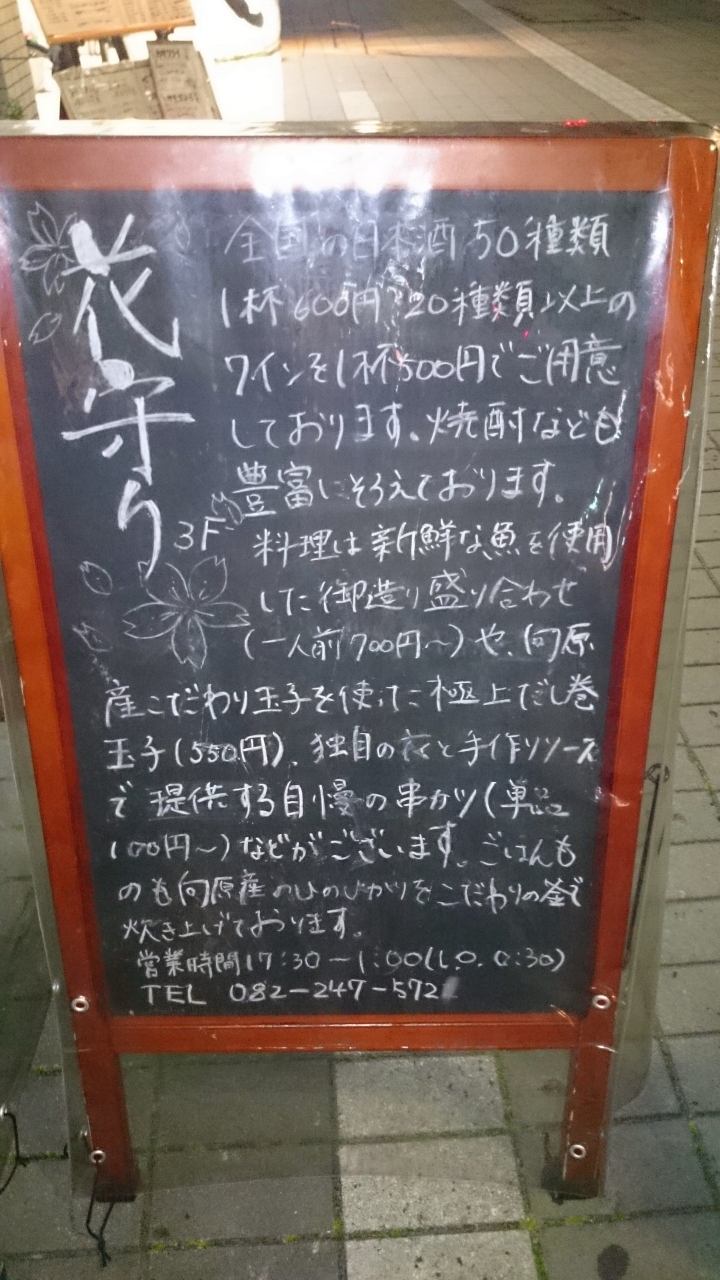 花守り 3F
全国の日本酒50種類
1杯600円 20種類以上の
ワインを1杯500円でご用意
しております。焼酎なども
豊富にそろえております。
料理は新鮮な魚を使用
した御造り盛り合わせ
(一人前700円〜)や、向原
産こだわり玉子を使った極上だし巻
玉子(550円)、独自の衣と手作りソース
で提供する自慢の串かツ(単品
100円〜)などがございます。ごはんも
のも向原産のひのひかりをこだわりの釜で
炊き上げております。
営業時間17:30-1:00(L.O. 0:30)
TEL 082-247-572